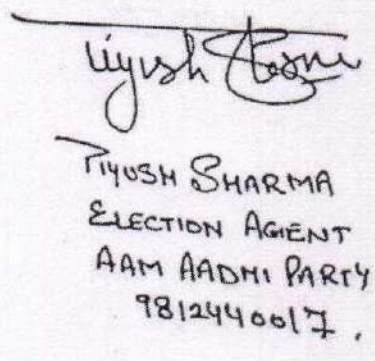 Piyush Sharma
PIYUSH SHARMA
ELECTION AGENT
AAM AADMI PARTY
9812440017.